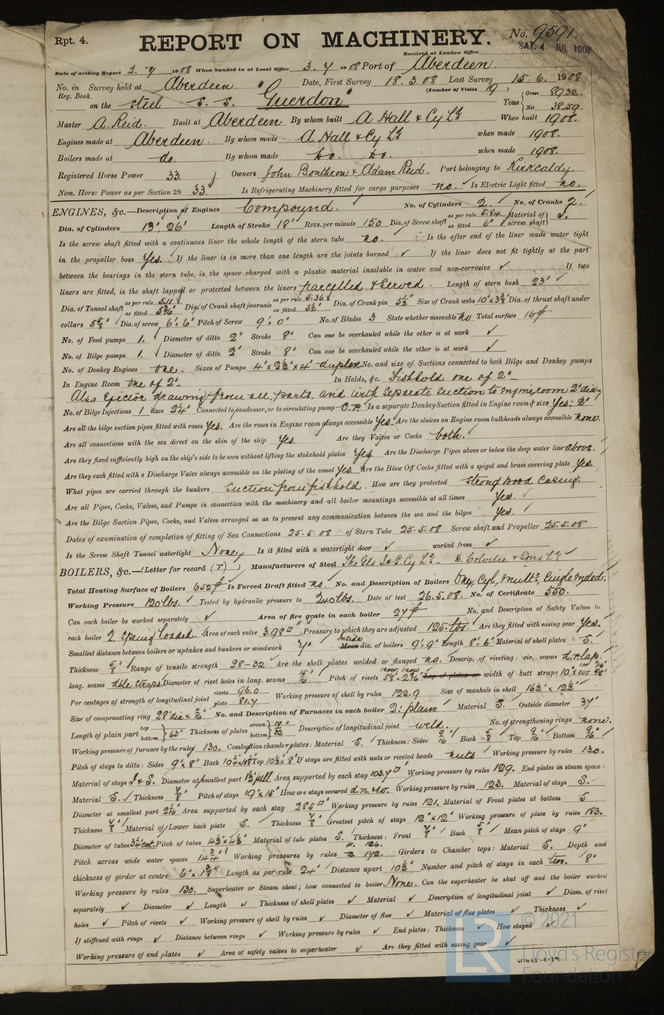 Rpt. 4.
REPORT ON MACHINERY.
No. 9591.
Received at London Office SAT. 4 JUL 1908
Date of writing Report 2. 7 1908 When handed in at Local Office 3. 7 1908 Port of Aberdeen.
No. in Survey held at Aberdeen Date, First Survey 18.3.08 Last Survey 15.6.1908
Reg. Book. (Number of Visits 19)
on the steel S.S. "Guerdon" Tons Gross 89.32 Net 38.59
Master A. Reid. Built at Aberdeen By whom built A Hall & Cy Ld When built 1908.
Engines made at Aberdeen. By whom made A Hall & Cy Ld when made 1908.
Boilers made at do. By whom made Do. Do. when made 1908.
Registered Horse Power 33 Owners John Bontheon & Adam Reid. Port belonging to Kirkcaldy.
Nom. Horse Power as per Section 28 33 Is Refrigerating Machinery fitted for cargo purposes no. Is Electric Light fitted no.
ENGINES, &c.—Description of Engines Compound. No. of Cylinders 2. No. of Cranks 2.
Dia. of Cylinders 13" 26" Length of Stroke 18" Revs. per minute 150 Dia. of Screw shaft as per rule 5.84 as fitted 6" Material of screw shaft S.
Is the screw shaft fitted with a continuous liner the whole length of the stern tube no. Is the after end of the liner made water tight
in the propeller boss Yes. If the liner is in more than one length are the joints burned ✓ If the liner does not fit tightly at the part
between the bearings in the stern tube, is the space charged with a plastic material insoluble in water and non-corrosive ✓ If two
liners are fitted, is the shaft lapped or protected between the liners parcelled & served. Length of stern bush 23"
Dia. of Tunnel shaft as per rule 5.11 as fitted Dia. of Crank shaft journals as per rule 5.36 as fitted 5½" Dia. of Crank pin 5½" Size of Crank webs 10"x3¾" Dia. of thrust shaft under
collars 5¾" Dia. of screw 6' 6" Pitch of Screw 9' 0" No. of Blades 3 State whether moveable no Total surface 16
No. of Feed pumps 1. Diameter of ditto 2" Stroke 8" Can one be overhauled while the other is at work ✓
No. of Bilge pumps 1. Diameter of ditto 2" Stroke 8" Can one be overhauled while the other is at work ✓
No. of Donkey Engines one. Sizes of Pumps 4"x2½"x4" duplex No. and size of Suctions connected to both Bilge and Donkey pumps
In Engine Room one of 2" In Holds, &c. Fishhold one of 2"
Also ejector drawing from all parts and with separate suction to engine room 2" dia
No. of Bilge Injections 1 sizes 2¼" Connected to condenser, or to circulating pump C.P. Is a separate Donkey Suction fitted in Engine room & size Yes. 2"
Are all the bilge suction pipes fitted with roses Yes. Are the roses in Engine room always accessible Yes. Are the sluices on Engine room bulkheads always accessible none.
Are all connections with the sea direct on the skin of the ship Yes. Are they Valves or Cocks both.
Are they fixed sufficiently high on the ship's side to be seen without lifting the stokehold plates Yes. Are the Discharge Pipes above or below the deep water line above.
Are they each fitted with a Discharge Valve always accessible on the plating of the vessel Yes. Are the Blow Off Cocks fitted with a spigot and brass covering plate Yes.
What pipes are carried through the bunkers Suction from fishhold. How are they protected Strong wood casing.
Are all Pipes, Cocks, Valves, and Pumps in connection with the machinery and all boiler mountings accessible at all times Yes.
Are the Bilge Suction Pipes, Cocks, and Valves arranged so as to prevent any communication between the sea and the bilges Yes.
Dates of examination of completion of fitting of Sea Connections 25.5.08 of Stern Tube 25.5.08 Screw shaft and Propeller 25.5.08
Is the Screw Shaft Tunnel watertight None Is it fitted with a watertight door ✓ worked from ✓
BOILERS, &c.—(Letter for record (r)) Manufacturers of Steel D. Colville & Sons Ld
Total Heating Surface of Boilers 652 Is Forced Draft fitted no. No. and Description of Boilers One, Cyl, Mult, Single ended.
Working Pressure 120 lbs. Tested by hydraulic pressure to 240 lbs. Date of test 26.5.08. No. of Certificate 550.
Can each boiler be worked separately ✓ Area of fire grate in each boiler 27 No. and Description of Safety Valves to
each boiler 2 Spring loaded. Area of each valve 3.98 Pressure to which they are adjusted 125 lbs. Are they fitted with easing gear Yes.
Smallest distance between boilers or uptakes and bunkers or woodwork 7" Mean dia. of boilers 9' 9" Length 8' 6" Material of shell plates S.
Thickness Range of tensile strength 28-32 Are the shell plates welded or flanged no. Descrip. of riveting: cir. seams d.r. lap.
long. seams dble straps Diameter of rivet holes in long. seams Pitch of rivets width of butt straps
Per centages of strength of longitudinal joint rivets 96.0 plate 81.7 Working pressure of shell by rules 122.9 Size of manhole in shell 16½"x12½"
Size of compensating ring No. and Description of Furnaces in each boiler 2. plain Material S. Outside diameter 37"
Length of plain part top bottom 63" Thickness of plates crown bottom Description of longitudinal joint weld. No. of strengthening rings none.
Working pressure of furnace by the rules 130. Combustion chamber plates: Material S. Thickness: Sides Back Top Bottom
Pitch of stays to ditto: Sides 9"x8" Back Top If stays are fitted with nuts or riveted heads nuts Working pressure by rules 130.
Material of stays I & S. Diameter at smallest part Area supported by each stay Working pressure by rules 129. End plates in steam space:
Material S. Thickness Pitch of stays 19"x15" How are stays secured Working pressure by rules 123. Material of stays S.
Diameter at smallest part Area supported by each stay 285 Working pressure by rules 121. Material of Front plates at bottom S
Thickness Material of Lower back plate S. Thickness Greatest pitch of stays 12"x12" Working pressure of plate by rules 153.
Diameter of tubes Pitch of tubes Material of tube plates S. Thickness: Front Back Mean pitch of stays 9"
Pitch across wide water spaces Working pressures by rules Girders to Chamber tops: Material S. Depth and
thickness of girder at centre Length as per rule 24" Distance apart 10½" Number and pitch of stays in each two. 8"
Working pressure by rules 130. Superheater or Steam chest; how connected to boiler None. Can the superheater be shut off and the boiler worked
separately ✓ Diameter ✓ Length ✓ Thickness of shell plates ✓ Material ✓ Description of longitudinal joint ✓ Diam. of rivet
holes ✓ Pitch of rivets ✓ Working pressure of shell by rules ✓ Diameter of flue ✓ Material of flue plates ✓ Thickness ✓
If stiffened with rings ✓ Distance between rings ✓ Working pressure by rules ✓ End plates: Thickness ✓ How stayed ✓
Working pressure of end plates ✓ Area of safety valves to superheater ✓ Are they fitted with easing gear ✓
© 2021
Lloyd's Register
Foundation
LR